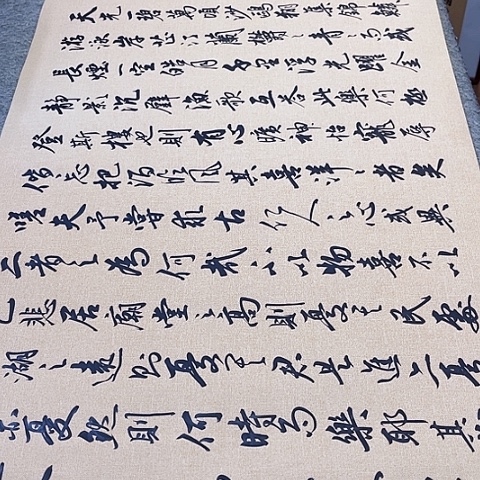 天光一碧萬頃沙鷗翔集錦鱗
游泳岸芷汀蘭鬱〻青〻而或
長煙一空皓月千里浮光躍金
靜影沉璧漁歌互答此樂何極
登斯樓也則有心曠神怡寵辱
偕忘把酒臨風其喜洋〻者矣
嗟夫予嘗求古仁人之心或異
二者之為何哉不以物喜不以
己悲居廟堂之高則憂其民處
湖之遠則憂其君是進亦憂
亦憂然則何時而樂耶其